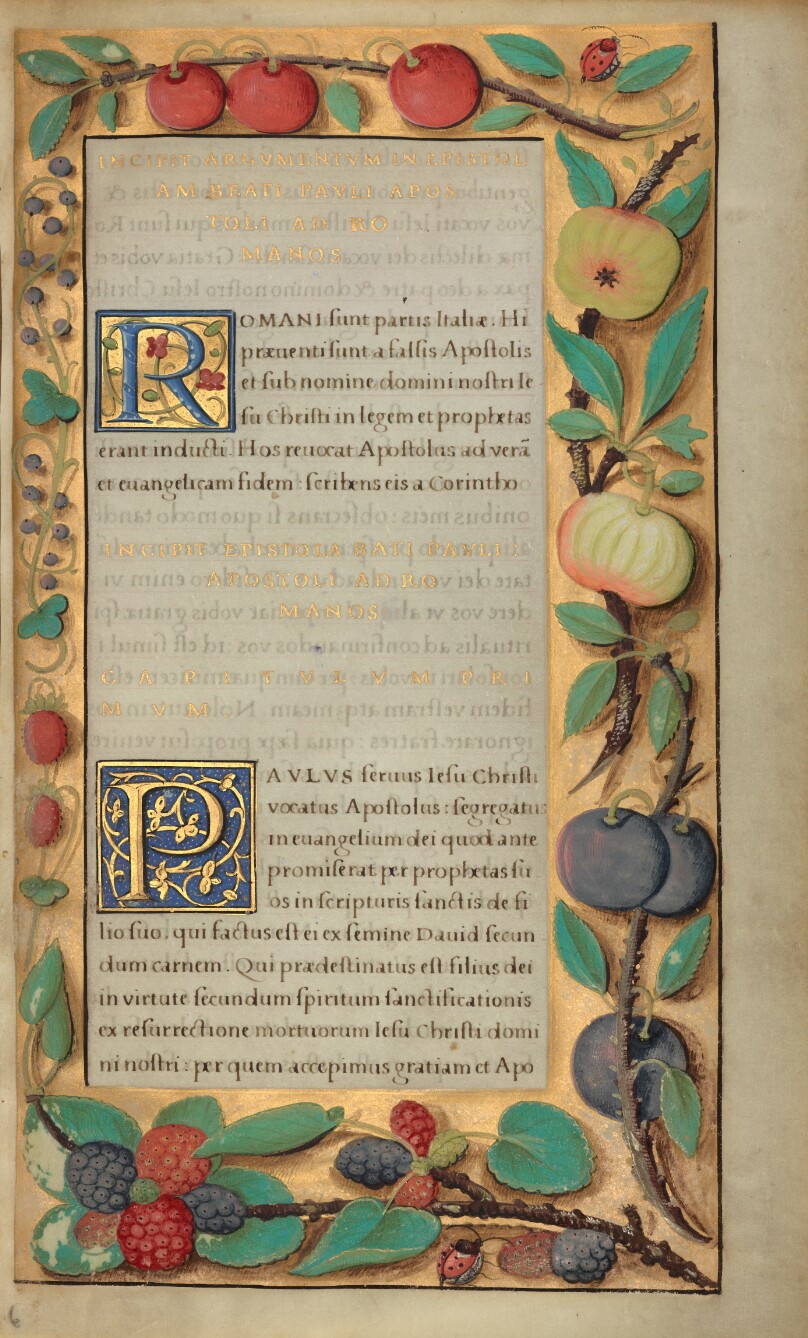 INCIPIT ARGVMENTVM IN EPISTOL
AM BEATI PAVLI APOS
TOLI AD RO
MANOS
ROMANI ſunt partis Italiæ. Hi
præuenti ſunt a falſis Apoſtolis
et ſub nomine domini noſtri Ie
ſu Chriſti in legem et prophetas
erant inducti. Hos reuocat Apoſtolus ad verã
et euangelicam fidem: ſcribens eis a Corintho
INCIPIT EPISTOLA BATI PAVLI
APOSTOLI AD RO
MANOS
CAPITVLVM PRI
MVM
PAVLVS ſeruus Ieſu Chriſti
vocatus Apoſtolus: ſegregatus
in euangelium dei quod ante
promiſerat per prophetas ſu
os in ſcripturis ſanctis de fi
lio ſuo. qui factus eſt ei ex ſemine Dauid ſecun
dum carnem. Qui prædeſtinatus eſt filius dei
in virtute ſecundum ſpiritum ſanctificationis
ex reſurrectione mortuorum Ieſu Chriſti domi
ni noſtri: per quem accepimus gratiam et Apo
6